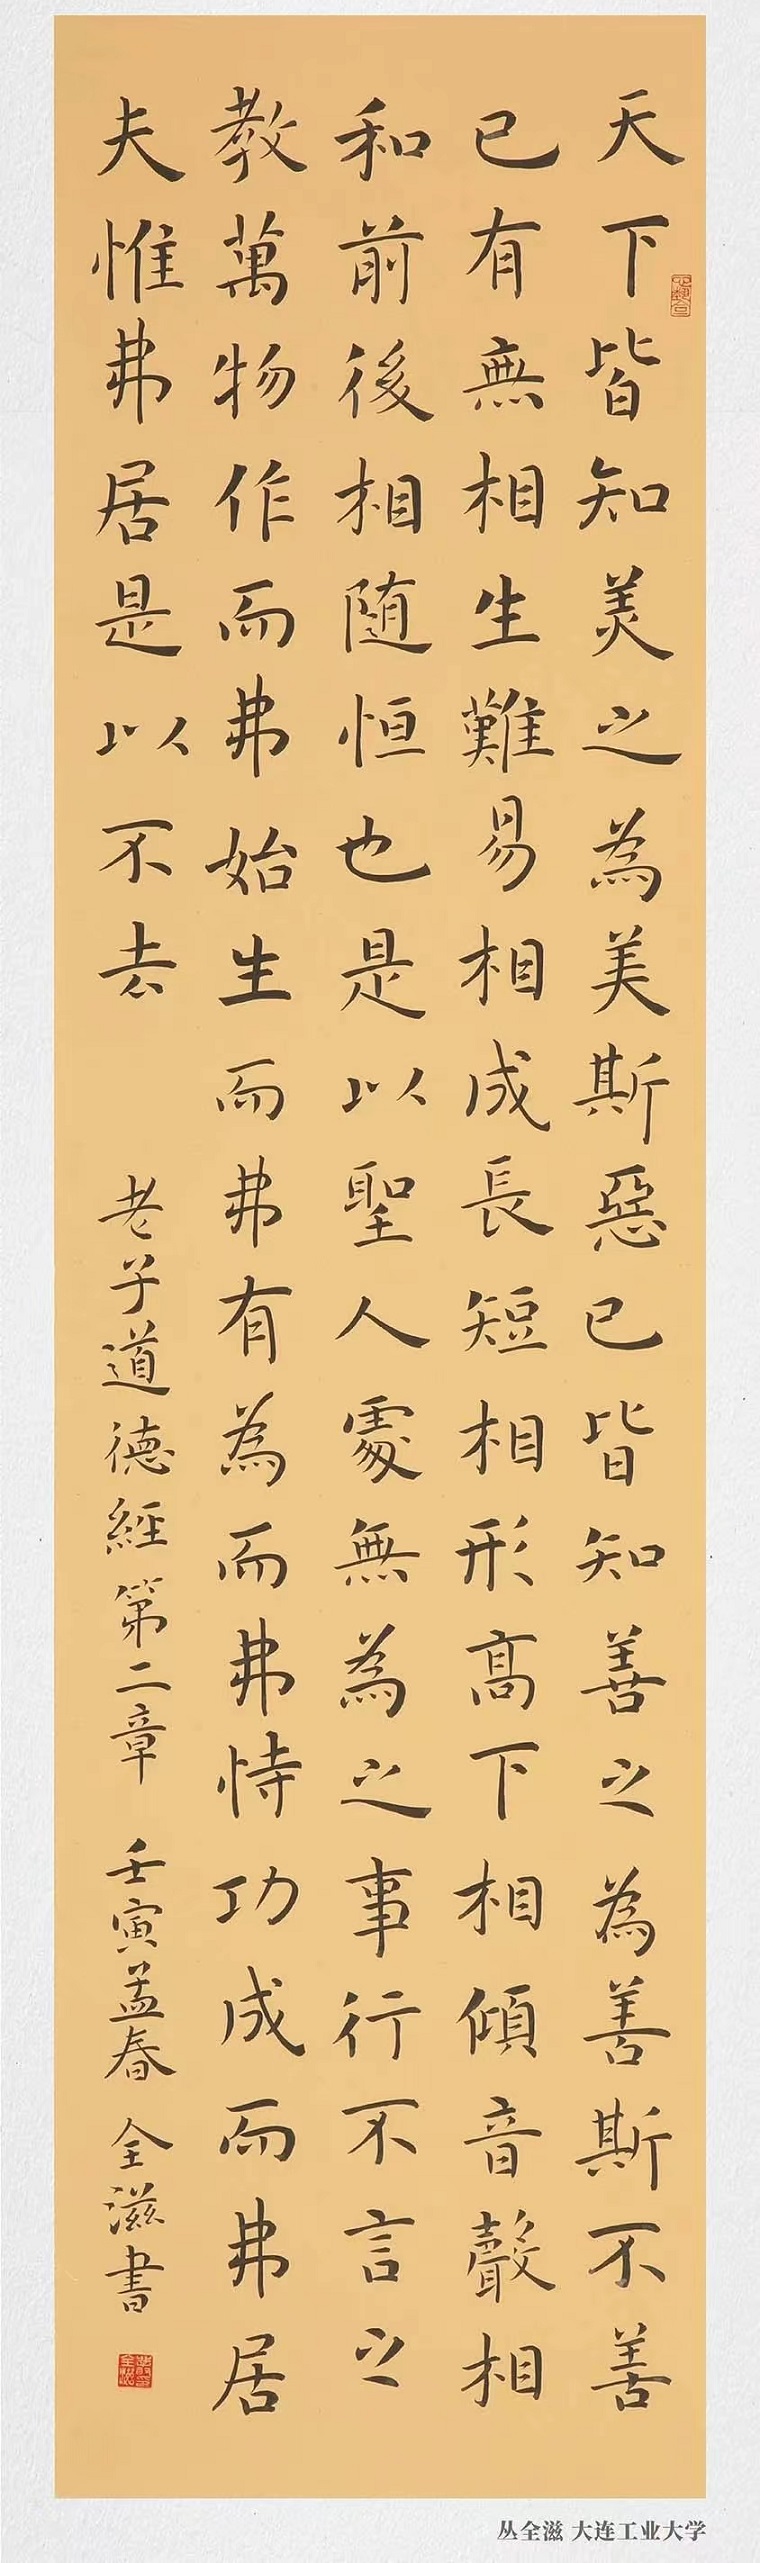 天下皆知美之為美斯惡已皆知善之為善斯不善
已有無相生難易相成長短相形高下相傾音聲相
和前後相随恒也是以聖人處無為之事行不言之
教萬物作而弗始生而弗有為而弗恃功成而弗居
夫惟弗居是以不去
老子道德經第二章 壬寅孟春 全滋書
丛全滋 大连工业大学